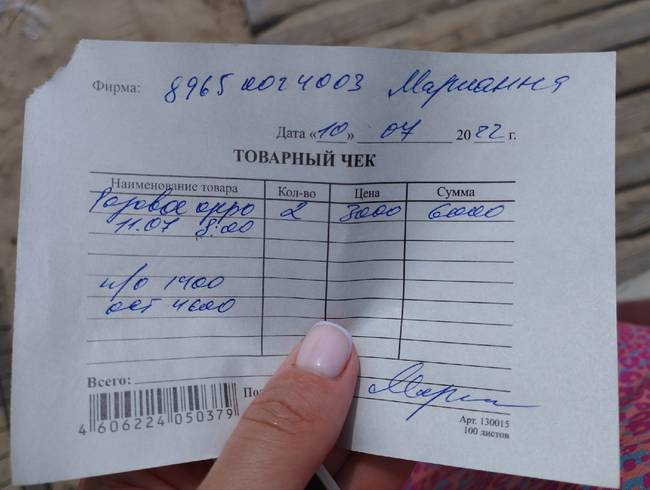 Фирма: 8965 0024003 Марианна
Дата «10» 07 2022 г.
ТОВАРНЫЙ ЧЕК
Наименование товара Кол-во Цена Сумма
Розовое озеро 2 3000 6000
11.07 8:00
п/о 1400
ост 4600
Всего:
4 606224 050379
Арт. 130015
100 листов